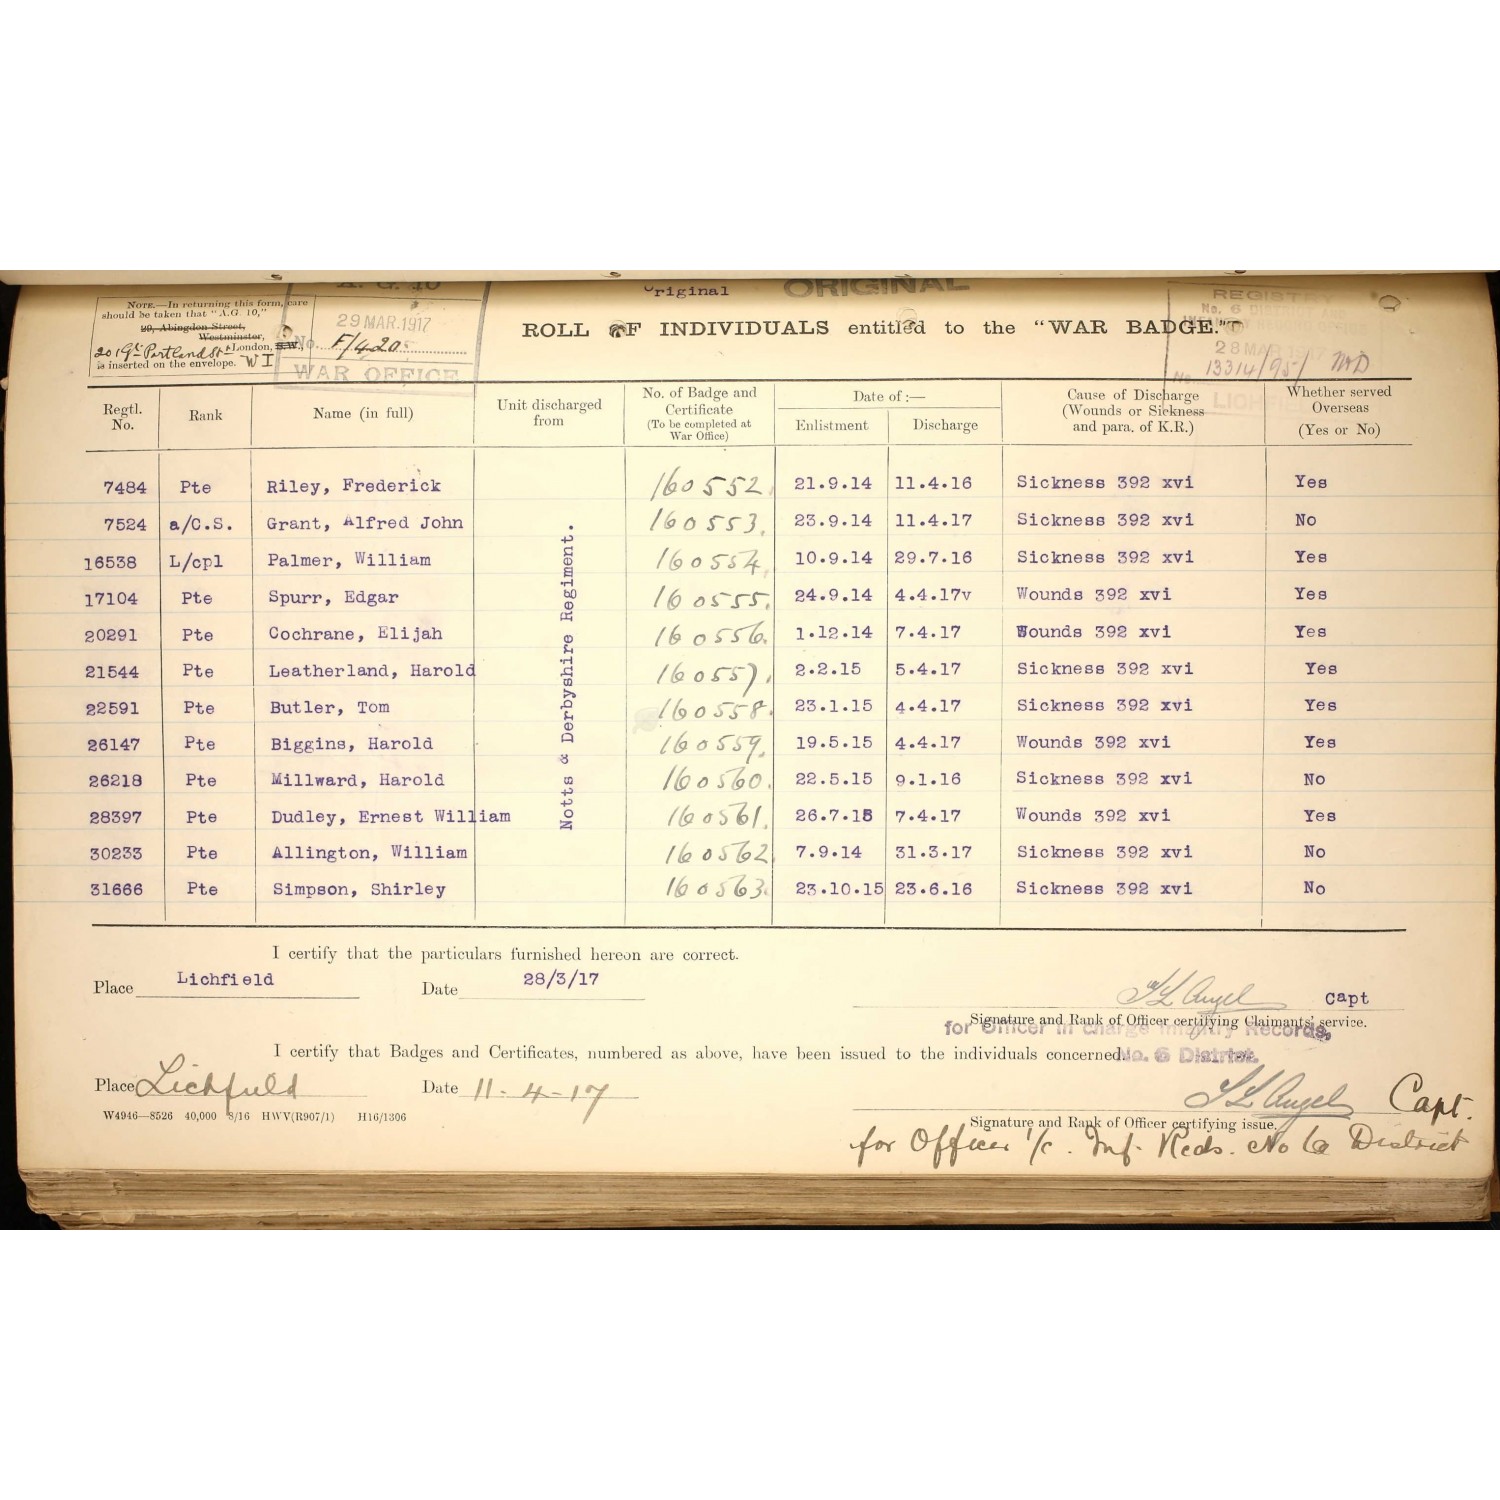 A. G. 10
Original
ORIGINAL
NOTE.—In returning this form, care
should be taken that "A.G. 10,"
29, Abingdon Street,
Westminster,
20 Gt. Portland St London, S.W.,
is inserted on the envelope. W I
29 MAR. 1917
No. F/420
WAR OFFICE
ROLL OF INDIVIDUALS entitled to the "WAR BADGE."
No. 6 DISTRICT
28 MAR 1917
No. 13314/95/
Regtl. No. Rank Name (in full) Unit discharged from No. of Badge and Certificate (To be completed at War Office) Date of :— Enlistment Discharge Cause of Discharge (Wounds or Sickness and para. of K.R.) Whether served Overseas (Yes or No)
Notts & Derbyshire Regiment.
7484 Pte Riley, Frederick 160552. 21.9.14 11.4.16 Sickness 392 xvi Yes
7524 a/C.S. Grant, Alfred John 160553. 23.9.14 11.4.17 Sickness 392 xvi No
16538 L/cpl Palmer, William 160554. 10.9.14 29.7.16 Sickness 392 xvi Yes
17104 Pte Spurr, Edgar 160555. 24.9.14 4.4.17v Wounds 392 xvi Yes
20291 Pte Cochrane, Elijah 160556. 1.12.14 7.4.17 Wounds 392 xvi Yes
21544 Pte Leatherland, Harold 160557. 2.2.15 5.4.17 Sickness 392 xvi Yes
22591 Pte Butler, Tom 160558. 23.1.15 4.4.17 Sickness 392 xvi Yes
26147 Pte Biggins, Harold 160559. 19.5.15 4.4.17 Wounds 392 xvi Yes
26218 Pte Millward, Harold 160560. 22.5.15 9.1.16 Sickness 392 xvi No
28397 Pte Dudley, Ernest William 160561. 26.7.15 7.4.17 Wounds 392 xvi Yes
30233 Pte Allington, William 160562 7.9.14 31.3.17 Sickness 392 xvi No
31666 Pte Simpson, Shirley 160563. 23.10.15 23.6.16 Sickness 392 xvi No
I certify that the particulars furnished hereon are correct.
Place Lichfield Date 28/3/17
Angel Capt
Signature and Rank of Officer certifying Claimants' service.
for Officer in charge Infantry Records,
No. 6 District.
I certify that Badges and Certificates, numbered as above, have been issued to the individuals concerned.
Place Lichfield Date 11-4-17
Angel Capt.
Signature and Rank of Officer certifying issue.
for Officer i/c. Inf. Recds. No 6 District
W4946—8526 40,000 8/16 HWV(R907/1) H16/1306